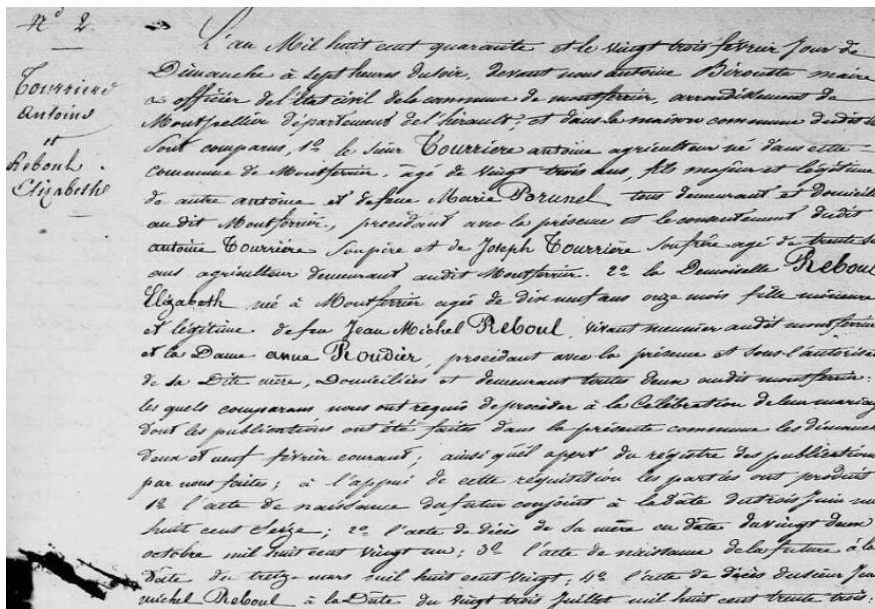 n° 2
Tourriere
Antoine
et
Reboul
Elizabeth
L'an Mil huit cent quarante et le vingt trois février jour de
Dimanche à sept heures du soir, devant nous antoine Béroutte maire
& officier de l'état civil de la commune de montferrier, arrondissement de
Montpellier département de l'hérault; et dans la maison commune dudit lieu
Sont comparus, 1° le sieur Tourriere antoine agriculteur né dans cette
commune de Montferrier, âgé de vingt trois ans, fils majeur et légitime
de autre antoine et de feue Marie Brunel, tous demeurant et Domiciliés
audit Montferrier, procédant avec la présence et le consentement dudit
antoine Tourrière Son père et de Joseph Tourrière Son frère agé de trente
ans agriculteur demeurant audit Montferrier. 2° la Demoiselle Reboul
Elizabeth né à Montferrier agée de dix neuf ans onze mois fille mineure
et légitime de feu Jean Michel Reboul, vivant meunier audit montferrier
et la Dame anne Roudier, procédant avec la présence et sous l'autorisat
de sa Dite mère, Domiciliées et demeurant toutes deux audit montferrier:
les quels comparans nous ont requis de procéder à la Célébration de leur mariag
Dont les publications ont été faites dans la présente commune les dimanches
Deux et neuf février courant; ainsi qu'il apert du régistre des publications
par nous faites; à l'appui de cette réquisition les parties ont produit
1° l'acte de naissance du futur conjoint à la Date du trois Juin mil
huit cent Seize; 2° l'acte de décès de sa mère en date du vingt deux
octobre mil huit cent vingt un; 3° l'acte de naissance de la future à la
Date du treize mars mil huit cent vingt; 4° l'acte de décès du sieur Jean
michel Reboul à la Date du vingt trois Juillet mil huit cent trente trois: